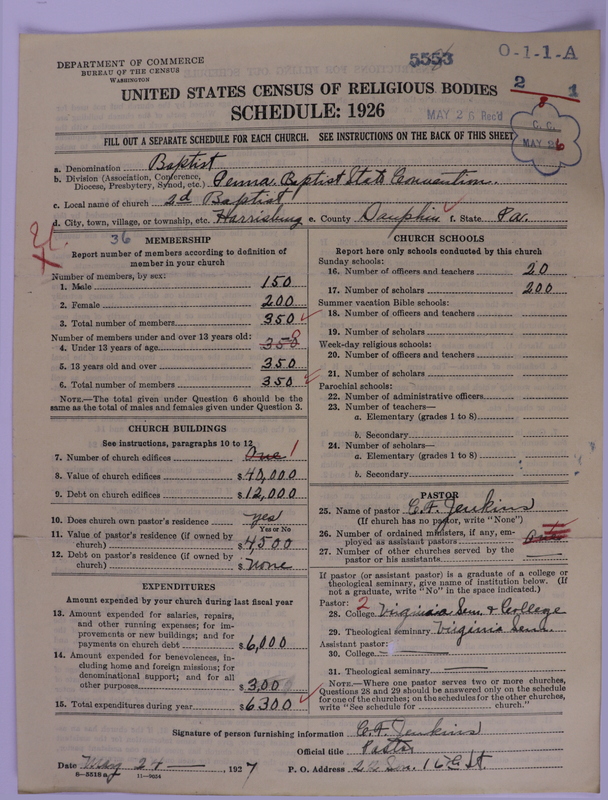 DEPARTMENT OF COMMERCE
BUREAU OF THE CENSUS
WASHINGTON
5553
O-1-1-A
UNITED STATES CENSUS OF RELIGIOUS BODIES
SCHEDULE: 1926
2 1
8
MAY 26 Rec'd
C. C.
MAY 26
FILL OUT A SEPARATE SCHEDULE FOR EACH CHURCH. SEE INSTRUCTIONS ON THE BACK OF THIS SHEET
a. Denomination Baptist
b. Division (Association, Conference, Diocese, Presbytery, Synod, etc.) Penna. Baptist State Convention.
c. Local name of church 2d Baptist
d. City, town, village, or township, etc. Harrisburg e. County Dauphin f. State Pa.
36
MEMBERSHIP
Report number of members according to definition of
member in your church
Number of members, by sex:
1. Male 150
2. Female 200
3. Total number of members 350
Number of members under and over 13 years old:
4. Under 13 years of age
5. 13 years old and over 350
6. Total number of members 350
NOTE.—The total given under Question 6 should be
same as the total of males and females given under Question 3.
CHURCH BUILDINGS
See instructions, paragraphs 10 to 12
7. Number of church edifices One 1
8. Value of church edifices $40,000
9. Debt on church edifices $12,000
10. Does church own pastor's residence yes
Yes or No
11. Value of pastor's residence (if owned by
church) $4500
12. Debt on pastor's residence (if owned by
church) $none
EXPENDITURES
Amount expended by your church during last fiscal year
13. Amount expended for salaries, repairs,
and other running expenses; for im-
provements or new buildings; and for
payments on church debt $6,000
14. Amount expended for benevolences, in-
cluding home and foreign missions; for
denominational support; and for all
other purposes $300
15. Total expenditures during year $6300
CHURCH SCHOOLS
Report here only schools conducted by this church
Sunday schools:
16. Number of officers and teachers 20
17. Number of scholars 200
Summer vacation Bible schools:
18. Number of officers and teachers
19. Number of scholars
Week-day religious schools:
20. Number of officers and teachers
21. Number of scholars
Parochial schools:
22. Number of administrative officers
23. Number of teachers—
a. Elementary (grades 1 to 8)
b. Secondary
24. Number of scholars—
a. Elementary (grades 1 to 8)
b. Secondary
PASTOR
25. Name of pastor C. F. Jenkins
(If church has no pastor, write "None")
26. Number of ordained ministers, if any, em-
ployed as assistant pastors
27. Number of other churches served by the
pastor or his assistants
If pastor (or assistant pastor) is a graduate of a college or
theological seminary, give name of institution below. (If
not a graduate, write "No" in the space indicated.)
Pastor: 2
28. College Virginia Sem. & College
29. Theological seminary Virginia Sem.
Assistant pastor:
30. College
31. Theological seminary
NOTE.—Where one pastor serves two or more churches,
Questions 28 and 29 should be answered only on the schedule
for one of the churches; on the schedules for the other churches,
write "See schedule for church."
Signature of person furnishing information C. F. Jenkins
Official title Pastor
Date May 24 1927 P. O. Address
8-5518 a 11-9634